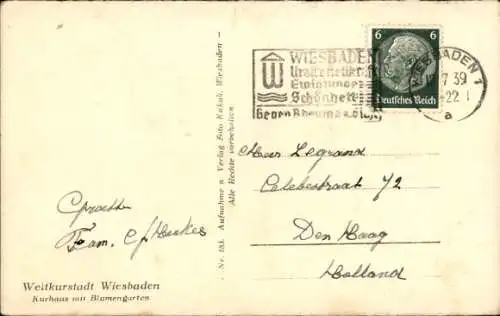 WIESBADEN
Uralte Heilkraft
Ewig junge
Schönheit
Gegen Rheuma u. Gicht
6 6
Deutsches Reich
WIESBADEN 1
7 39
22
a
Nr. 183. Aufnahme u. Verlag Foto Wiesbaden -
Alle Rechte vorbehalten
Legrand
Celebesstraat 72
Den Haag
Holland
Fam.
Weltkurstadt Wiesbaden
Kurhaus mit Blumengarten